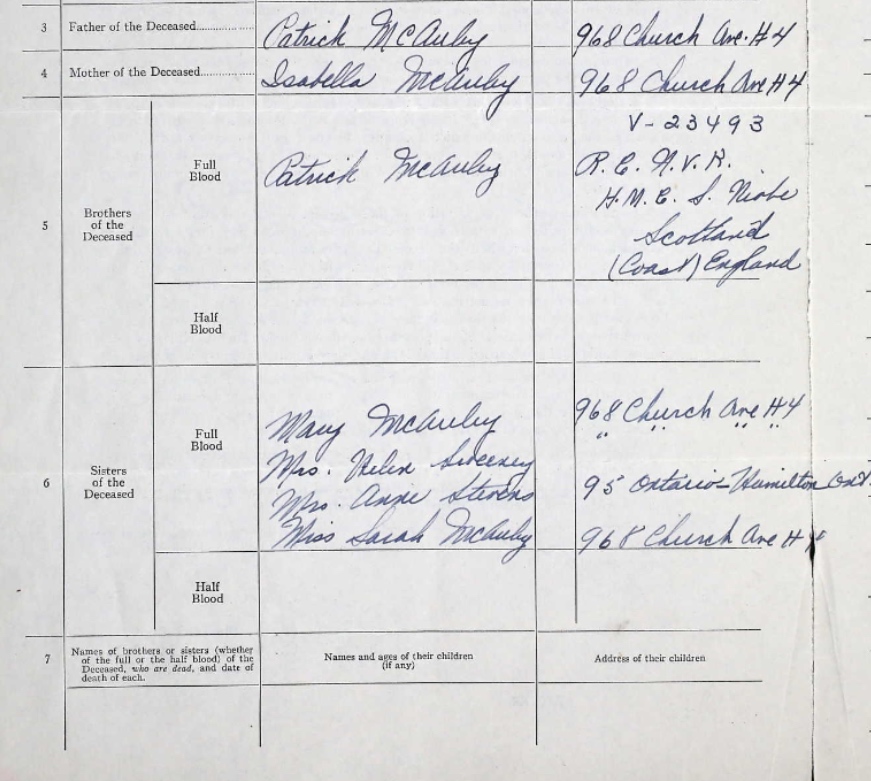 3 Father of the Deceased Patrick McAuley 968 Church Ave. H 4
4 Mother of the Deceased Isabella McAuley 968 Church Ave H 4
V-23493
5 Brothers of the Deceased Full Blood Patrick McAuley R.C.N.V.R.
H.M.C.S. Niobe
Scotland
(Coast) England
Half Blood
6 Sisters of the Deceased Full Blood Mary McAuley 968 Church Ave H 4
Mrs. Helen Sweeney " " " "
Mrs. Anne Stevens 95 Ontario - Hamilton Ont.
Miss Sarah McAuley 968 Church Ave H 4
Half Blood
7 Names of brothers or sisters (whether
of the full or the half blood) of the
Deceased, who are dead, and date of
death of each.
Names and ages of their children
(if any)
Address of their children